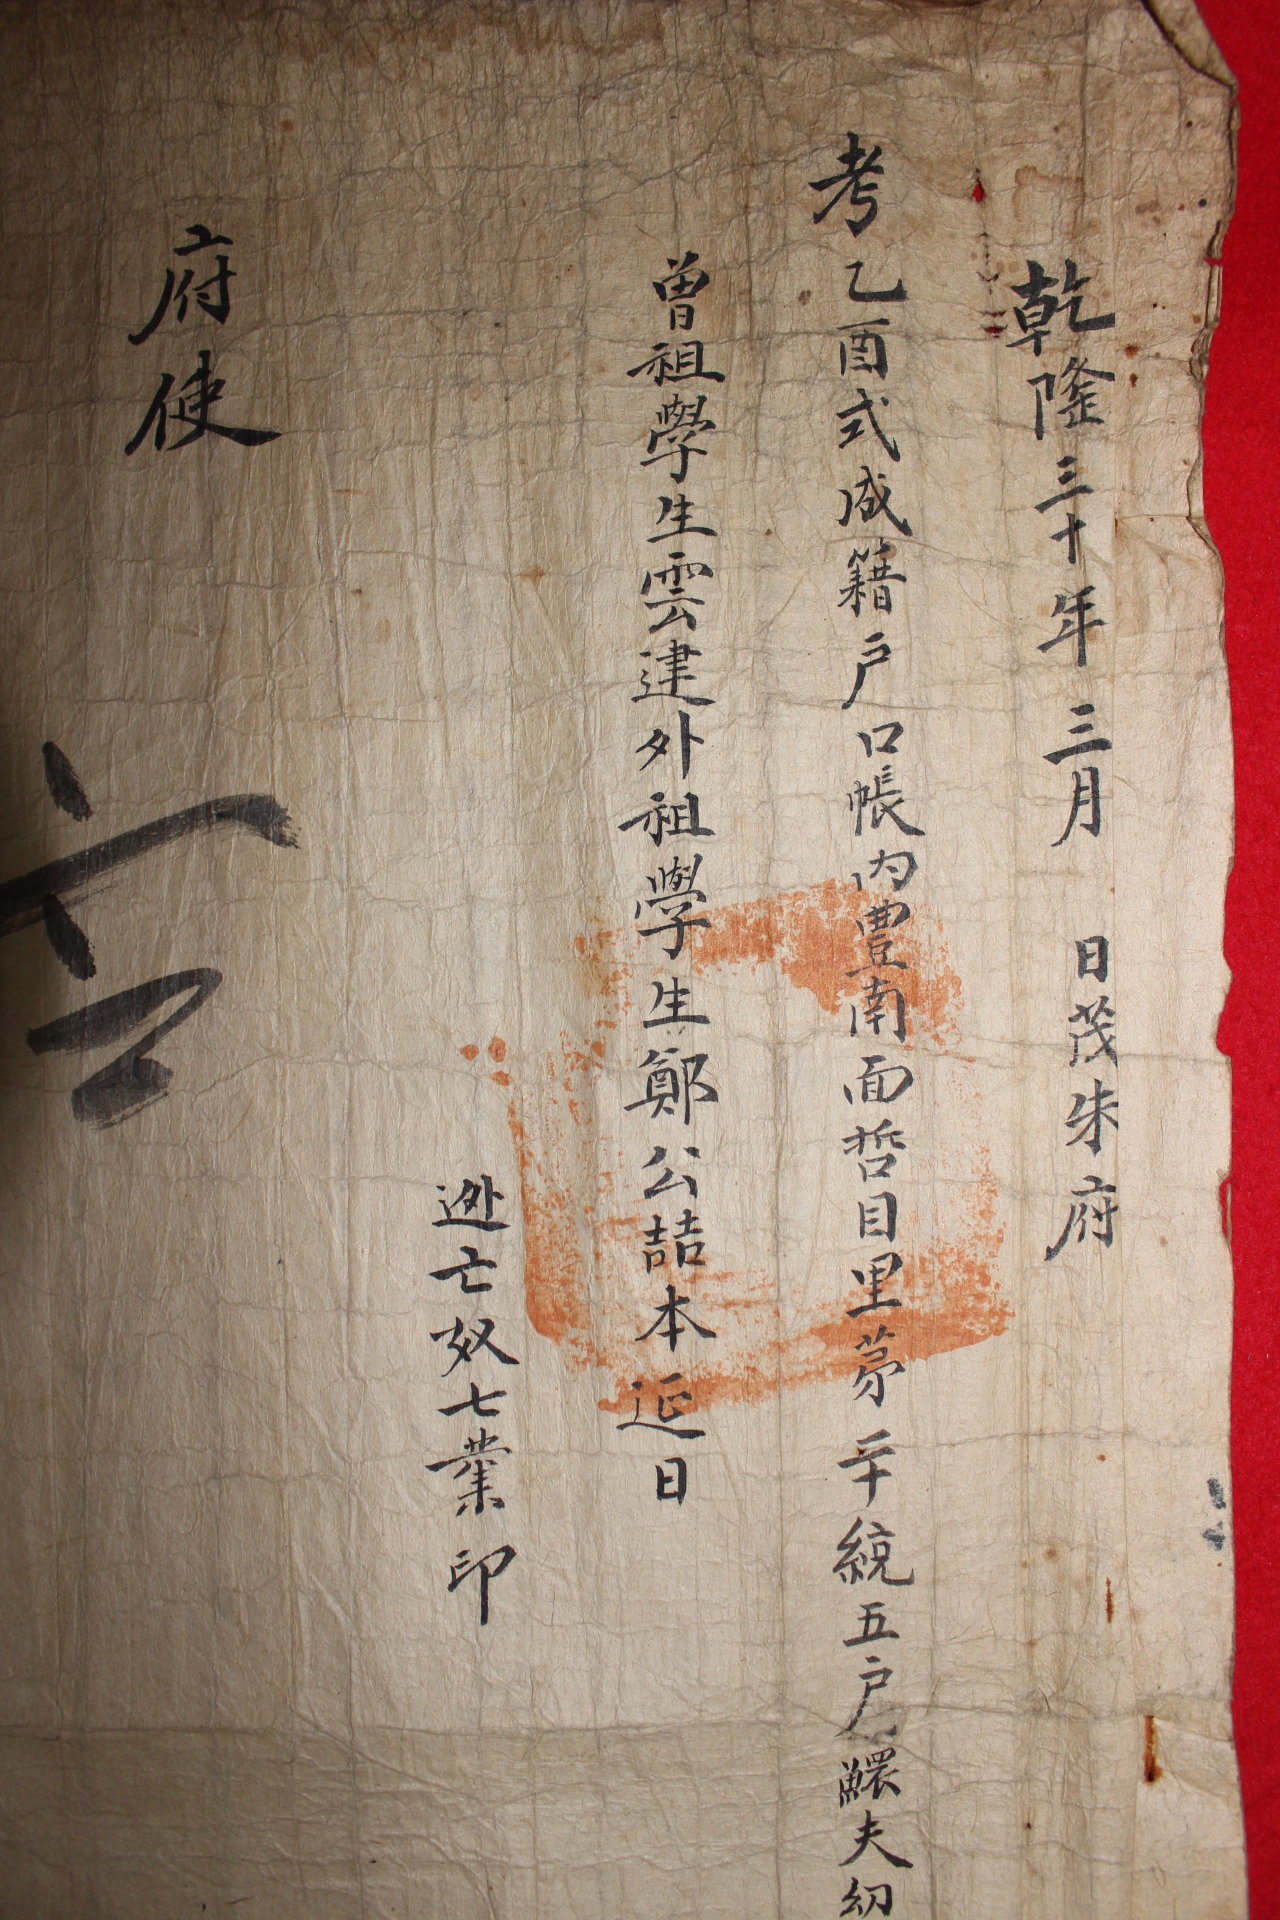 乾隆三十年三月 日茂朱府
考乙酉式成籍戶口帳內豊南面哲目里茅二十統五戶鰥夫幼
曾祖學生雲建外祖學生鄭公喆本延日
逃亡奴七業印
府使